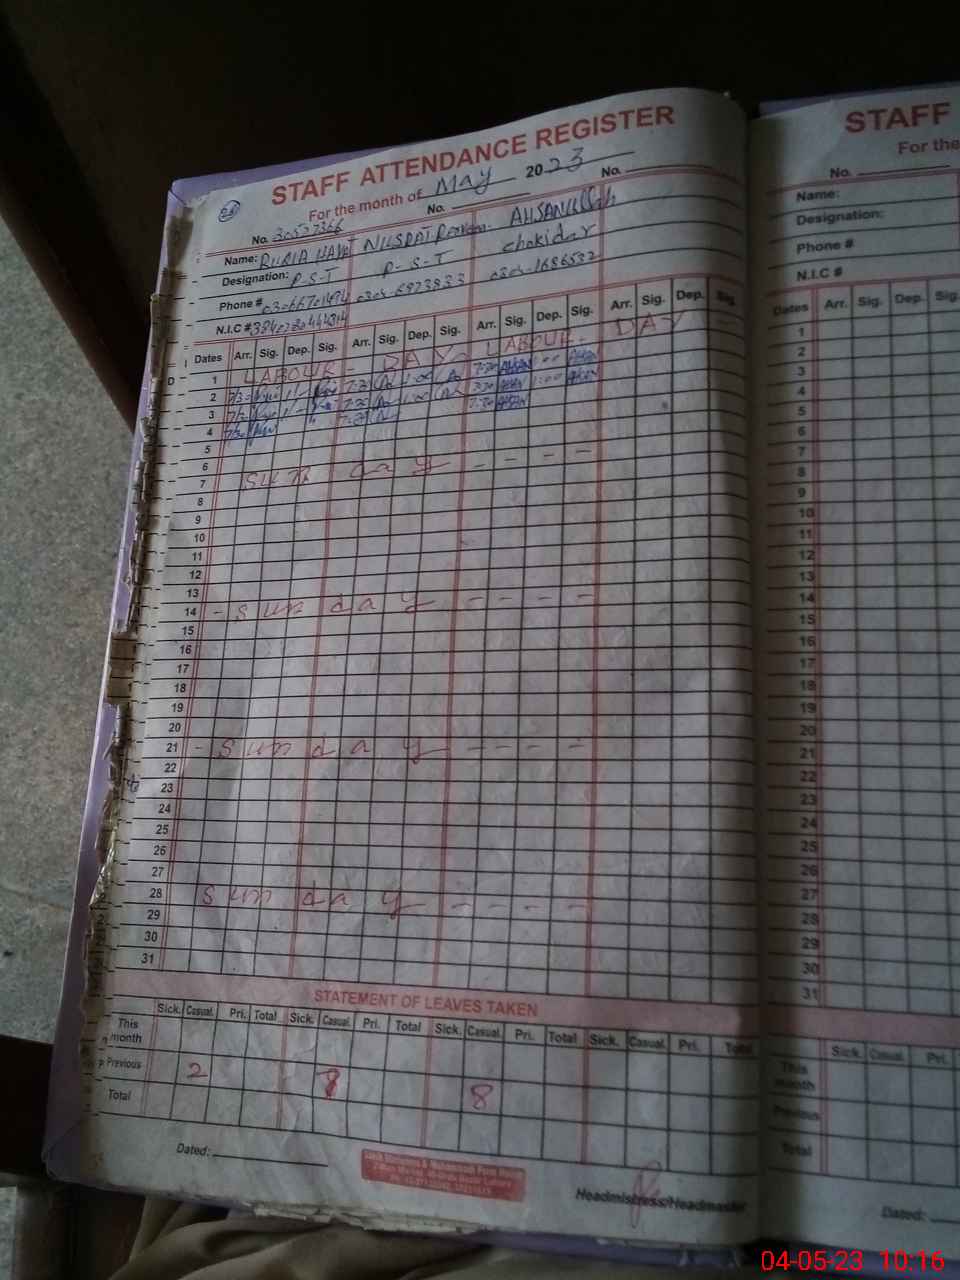 STAFF ATTENDANCE REGISTER
For the month of May 2023
No. No.
No. 30527366
Name: NUSRAT Parveen. AHSANullah
Designation: P-S-T P-S-T chokidar
Phone # 0305-6973833 0303-1686532
N.I.C #
Dates Arr. Sig. Dep. Sig. Arr. Sig. Dep. Sig. Arr. Sig. Dep. Sig. Arr. Sig. Dep. Sig.
1 LABOUR - DAY - LABOUR - DAY
2 7/30 7:30 1:00 7:30 AHSAN 1:00 AHSAN
3 7/30 7:30 1:00 7:30 AHSAN 1:00 AHSAN
4 7/30 7:30 7:30 AHSAN
5
6
7 sun day - - - -
8
9
10
11
12
13
14 - sun day - - - -
15
16
17
18
19
20
21 - sun day - - - -
22
23
24
25
26
27
28 sun day - - - -
29
30
31
STATEMENT OF LEAVES TAKEN
Sick. Casual. Pri. Total Sick. Casual. Pri. Total Sick. Casual. Pri. Total Sick. Casual. Pri. Total
This month
Previous 2 8 8
Total
Dated:
Headmistress/Headmaster
STAFF
For the
No.
Name:
Designation:
Phone #
N.I.C #
Dates Arr. Sig. Dep. Sig.
1
2
3
4
5
6
7
8
9
10
11
12
13
14
15
16
17
18
19
20
21
22
23
24
25
26
27
28
29
30
31
Sick. Casual. Pri.
This month
Previous
Total
Dated:
04-05-23 10:16